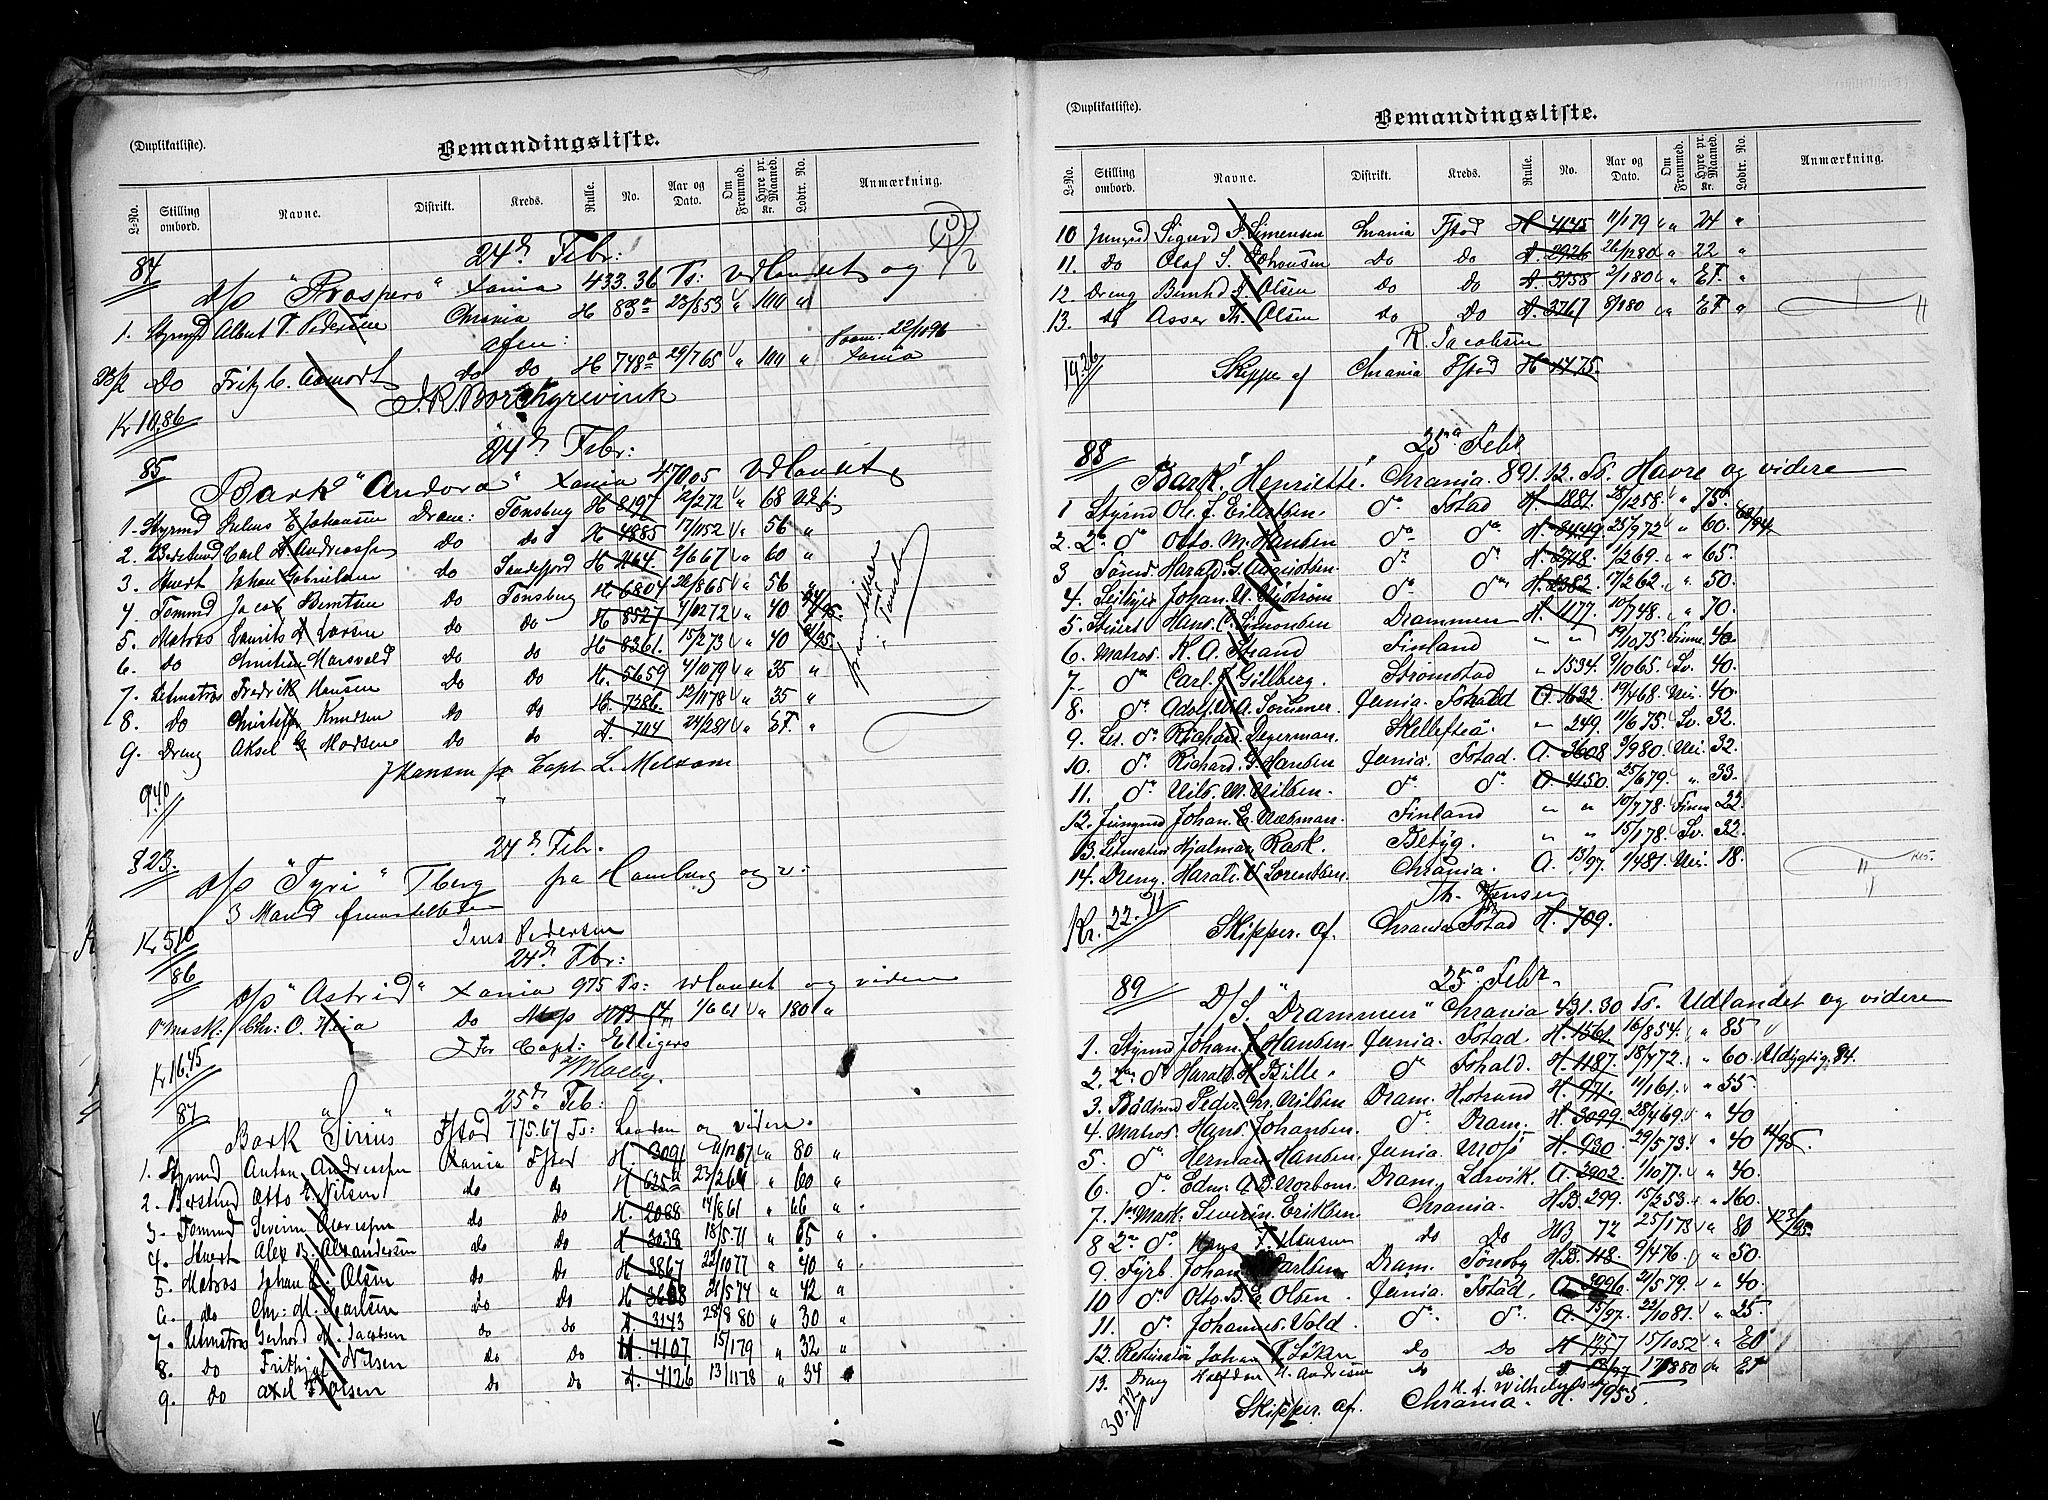 (Duplikatliste).
Bemandingsliste.
L-No. Stilling ombord. Navne. Distrikt. Kreds. Rulle. No. Aar og Dato. Om Fremmed. Hyre pr. Maaned. Kr. Lodtr. No. Anmærkning.
24de Febr:
84 D/S "Prospero" Xania 433.36 Ts: Udlandet og
1. Styrmd Albert T. Pedersen Chrania H 83a 23/853 " 100 "
afm: Paam: 22/1096
Do Fritz C. Aamodt Do Do H 748a 29/765 " 100 " Xania
J. R. Borchgrevink
Kr 10,86
24de Febr:
85 Bark "Andora" Xania 470.05 Udlandet
1. Styrmd Julius E Johansen Dram: Tonsberg H 8197 12/272 " 68
2. Carl A Andreassen Do do H 4885 17/1152 " 56 "
3. Stuert Johan Gabrielsen do Sandefjord H 1164 2/667 " 60 "
4. Tømmd Jacob Berntsen Do Tonsberg H 6804 26/865 " 56 "
5. Matros Laurits A Larsen Do Do H 8527 4/1272 " 40 24/95
6. Do Christian Marsveld Do Do H 8361 15/273 " 40 9/95
7. Letmatros Fredrik Hansen Do Do H. 5659 4/1079 " 35 "
8. Do Christoff Knudsen Do Do H. 7386 12/1178 " 35 "
9. Dreng Aksel G Madsen Do do A. 704 24/281 " EF. "
J Hansen for Capt L. Melsom
9.40
24de Febr.
323. D/S "Tyri" Tberg fra Hamburg og v:
3 Mand fremstillede
Kr 5,10
Jens Pedersen
24de Febr:
86 D/S "Astrid" Xania 975 Ts: Udlandet og videre
1 Mask: Chr: O. Heia Do HB 14 1/661 " 180 "
For Capt: Elligers
Kr 16.45
25de Feb:
87 Bark "Sirius" Fstad 775.67 Ts: London og videre.
1. Styrmd Anton Andreassen Xania Fstad H. 3091 11/1267 " 80 "
2. Otto E Nilsen do do H 625a 23/261 " 60 "
3. Tømmd Severin do Do H. 2088 14/861 " 66 "
4. Stuert Alex B. Alexandersen do Do H 3038 18/571 " 65 "
5. Matros Johan L. Olsen do Do H 3867 22/1077 " 40 "
6. do Chr: M. Carlsen do Do H 3608 21/574 " 42 "
7. Letmatros Gerhard M. Jacobsen do do A 3143 28/880 " 30 "
8. Do Frithjof Nilsen Do Do H 7107 15/179 " 32 "
9. do Axel Olsen Do do A. 4126 13/1178 " 34 "
(Duplikatliste).
Bemandingsliste.
L-No. Stilling ombord. Navne. Distrikt. Kreds. Rulle. No. Aar og Dato. Om Fremmed. Hyre pr. Maaned. Kr. Lodtr. No. Anmærkning.
10 Jungmd Sigurd S. Simensen Chrania Fstad H 4145 11/179 " 24 "
11. Do Olaf S. Johansen Do Do A. 2926 26/1280 " 22 "
12. Dreng Bernhd A. Olsen Do Do A. 3158 2/180 " EF. "
13. do Asser Th. Olsen do Do A. 3767 8/180 " EF "
R. Jacobsen
19.26 Skipper af Chrania Fstad H 1475.
25de Febr
88 Bark "Henriette" Chrania. 891.12. Ts. Havre og videre
1 Styrmd Ole J. Eilertsen. do Fstad H. 1881. 28/1258. " 75.
2. 2den do Otto. M. Hansen do do H. 3449 25/972 " 60. 68/94.
3 Tømd. Harald. G. do. do H. 2718. 1/269. " 65.
4. Johan. A. Nystrøm do. do H. 2382 17/262. " 50.
5. Stuert Hans. C. Simonsen Drammen H. 1177. 10/748. " 70.
6. Matros. K. A. Strand Finland " " 19/1075. Finne. 40.
7. do Carl. J. Gillberg. Strömstad " 1534. 9/1065. Sv. 40.
8. do Adolf. W. A. Sommer. Jania. Fshald A. 1632. 19/468. Nei. 40.
9. Let. do Richard. Degerman. Skellefteå " 249. 11/675. Sv. 32.
10. do Richard. G. Hansen Jania. Fstad. A. 3608 3/980. Nei. 32.
11. do Nils. M. Nilsen. do do. A. 4150. 25/679. " 33.
12. Jungmd Johan. E. Finland " " 10/778. Finne 22.
13. Letmatros Hjalmar. Rask. Betyg. " " 15/178. Sv. 32.
14. Dreng. Harald. W. Lorentsen. Chrania. A. 13/97. 1/481. Nei. 18.
Th. Jensen
Kr. 22.71 Skipper. af. Chrania Fstad H. 709.
25de Febr.
89 D/S. "Drammen" Chrania 431.30 Ts. Udlandet og videre
1. Styrmd Johan. L. Hansen. Jania. Fstad. H. 1561. 16/854. " 85 "
2. 2den do Harald. H. Bille. do Fshald. H. 1187. 18/772. " 60. Udygtig. 94.
3. Baadsmd Peder. Chr. Nilsen Dram. Hstrand H. 971. 11/161. " 55
4. Matros. Hans. Johansen. do. Dram. H. 3099. 28/469. " 40
5. do Herman. Hansen. Jania. Moss H. 930. 29/573. " 40 14/95.
6. do. Edm. A. B. Norbom. Dram. Larvik. A. 3902. 1/1077. " 40.
7. 1ste Mask: Severin. Eriksen Chrania. H.B. 299. 15/253. " 160.
8 2den do Hans F. Hansen do Do HB 72 25/173 " 80 123/95.
9. Fyrb. Johan Carlsen Dram. Tønsbg H.B. 118. 9/476. " 50.
10 do. Otto. B. E. Olsen. Jania. Fstad. A. 3096. 21/579. " 40.
11. do Johannes. Vold. do. do. A. 15/97. 22/1081. " 25.
12. Restauratør Johan Løken Do Do H 1357 15/1052 " EF
13. Dreng Halfdan H. Andresen do Do A 17/1880 " EF
H. A. Wilhelmsen
30.72 Skipper. af. Chrania. H. 7955.